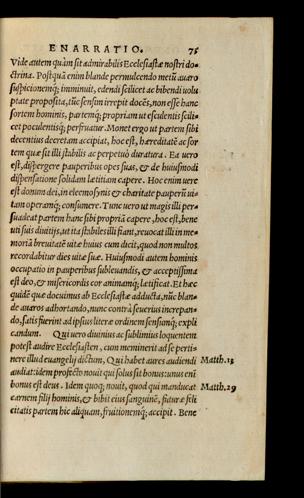 ENARRATIO. 75
Vide autem quàm sit admirabilis Ecclesiastæ nostri do-
ctrina. Postquā enim blande permulcendo metū auaro
suspicionemq; imminuit, edendi scilicet ac bibendi uolu
ptate proposita, tūc sensim irrepit docēs, non esse hanc
sortem hominis, partemq; propriam ut esculentis scili-
cet poculentisq; perfruatur. Monet ergo ut partem sibi
decentius decretam accipiat, hoc est, hæreditatē ac sor
tem quæ sit illi stabilis ac perpetuò duratura. Ea uero
est, dispergere pauperibus opes suas, & de huiusmodi
dispensatione solidam lætitiam capere. Hoc enim uere
est donum dei, in eleemosynis & charitate pauperū ui-
tam operamq; consumere. Tunc uero ut magis illi per-
suadeat partem hanc sibi propriā capere, hoc est, bene
uti suis diuitijs, ut ita stabiles illi fiant, reuocat illi in me-
moriā breuitatē uitæ huius cum dicit, quod non multos
recordabitur dies uitæ suæ. Huiusmodi autem hominis
occupatio in pauperibus subleuandis, & acceptissima
est deo, & misericordis cor animamq; lætificat. Et hæc
quidē quæ docuimus ab Ecclesiastæ adducta, nūc blan-
de auaros adhortando, nunc contrà seuerius increpan-
do, satis fuerint ad ipsius literæ ordinem sensumq; expli
candum. Qui uero diuinius ac sublimius loquentem
potest audire Ecclesiasten, cum meminerit ad se perti-
nere illud euangelij dictum, Qui habet aures audiendi Matth.13
audiat: idem profectò nouit qui solus sit bonus: unus enī
bonus est deus. Idem quoq; nouit, quod qui manducat Matth.29
carnem filij hominis, & bibit eius sanguinē, futuræ feli
citatis partem hic aliquam, fruitionemq; accipit. Bene